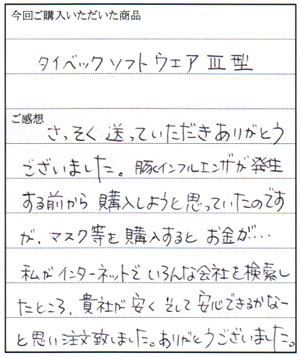 今回ご購入いただいた商品
タイベックソフトウェアⅢ型
ご感想
さっそく送っていただきありがとう
ございました。豚インフルエンザが発生
する前から購入しようと思っていたのです
が、マスク等を購入するとお金が…
私がインターネットでいろんな会社を検索し
たところ、貴社が安くそして安心できるかなー
と思い注文致しました。ありがとうございました。